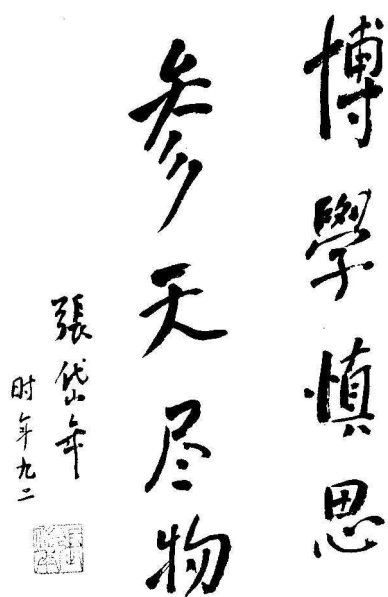 博學慎思
参天尽物
張岱年
时年九二